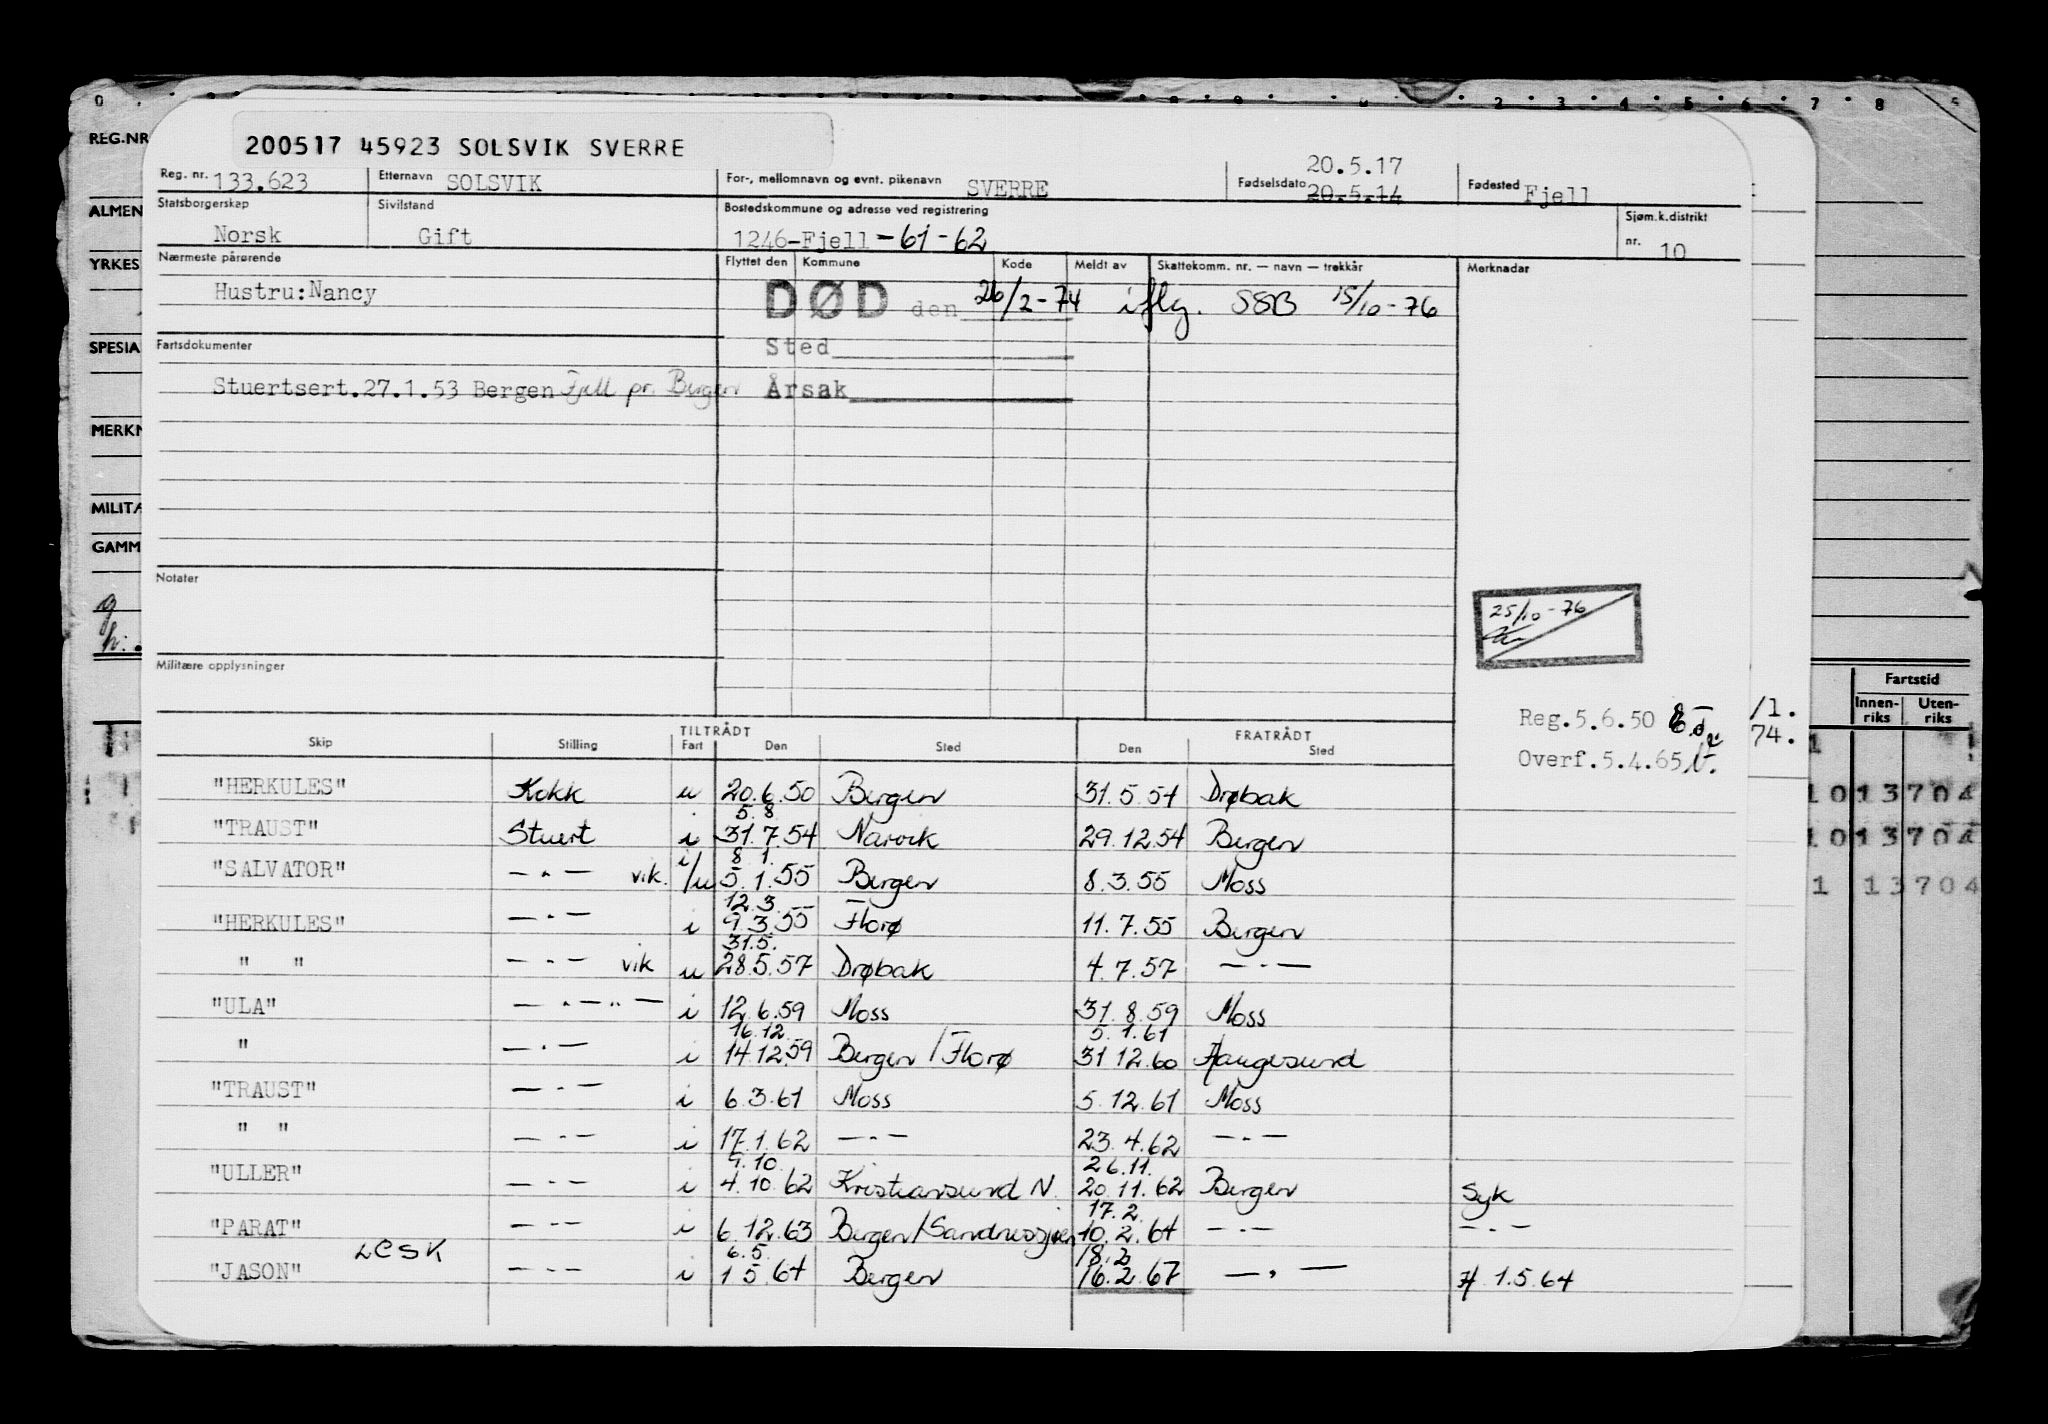 REG.NR
ALMEN
YRKES
SPESIA
MERKN
MILITÆ
GAMM
200517 45923 SOLSVIK SVERRE
Reg. nr. 133.623 Etternavn SOLSVIK For-, mellomnavn og evnt. pikenavn SVERRE Fødselsdato 20.5.17 20.5.14 Fødested Fjell
Statsborgerskap Norsk Sivilstand Gift Bostedskommune og adresse ved registrering 1246-Fjell-61-62 Sjøm.k.distrikt nr. 10
Nærmeste pårørende Flyttet den Kommune Kode Meldt av Skattekomm. nr. — navn — trekkår Merknadar
Hustru:Nancy DØD den 26/2-74 iflg. SSB 15/10-76
Sted
Fartsdokumenter
Stuertsert.27.1.53 Bergen Fjell pr. Bergen Årsak
Notater
25/10-76
Militære opplysninger
Fartstid
Innen-riks Uten-riks
Reg.5.6.50
/1.
Overf.5.4.65
74.
TILTRÅDT FRATRÅDT
Skip Stilling Fart Den Sted Den Sted
"HERKULES" Kokk u 20.6.50 Bergen 31.5.54 Drøbak
5.8
"TRAUST" Stuert i 31.7.54 Narvik 29.12.54 Bergen
8.1.
"SALVATOR" — " — vik. i/u 5.1.55 Bergen 8.3.55 Moss
12.3.
"HERKULES" — " — i 9.3.55 Florø 11.7.55 Bergen
31.5.
" " — " — vik u 28.5.57 Drøbak 4.7.57 — " —
"ULA" — " — " — i 12.6.59 Moss 31.8.59 Moss
16.12. 5.1.61
" — " — i 14.12.59 Bergen/Florø 31.12.60 Haugesund
"TRAUST" — " — i 6.3.61 Moss 5.12.61 Moss
" " — " — i 17.1.62 — " — 23.4.62 — " —
9.10. 26.11.
"ULLER" — " — i 4.10.62 Kristiansund N. 20.11.62 Bergen Syk
17.2.
"PARAT" — " — i 6.12.63 Bergen/Sandnessjøen 10.2.64 — " — — " —
LCSK 6.5. 18.2
"JASON" — " — i 1.5.64 Bergen 16.2.67 — " — H 1.5.64
1013704
1013704
1 13704